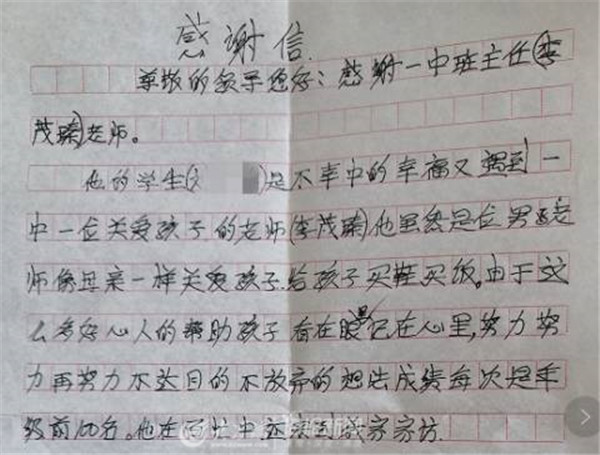 感谢信.
尊敬的领导您好:感谢一中班主任(李
茂臻)老师。
他的学生( )是不幸中的幸福又遇到一
中一位关爱孩子的老师(李茂臻)他虽然是位男老
师像母亲一样关爱孩子.给孩子买鞋买饭。由于这
么多好心人的帮助孩子看在眼里记在心里,努力努
力再努力不达目的不放弃的想法成绩每次是年
级前100名。他在百忙中还来到我家家访.